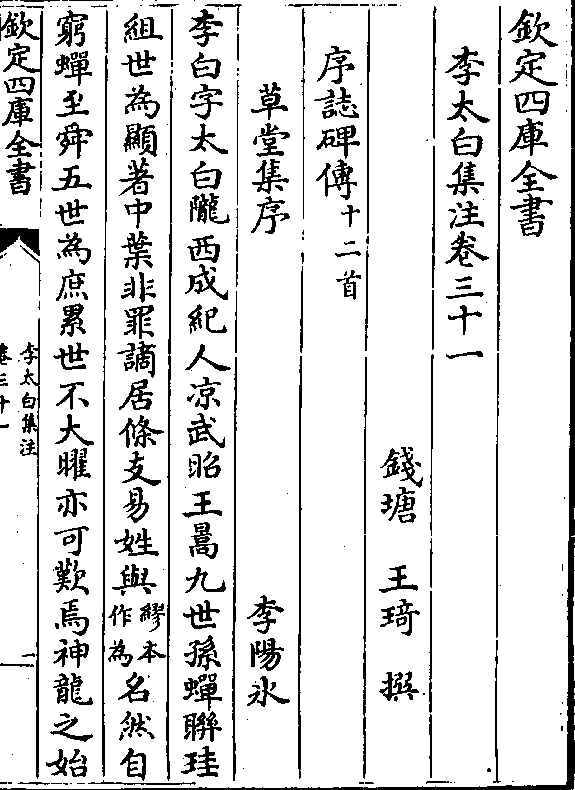 欽定四庫全書
李太白集注卷三十一
錢塘 王琦 撰
序誌碑傳十二首
草堂集序 李陽冰
李白字太白隴西成紀人凉武昭王暠九世孫蟬聯珪
組世為顯著中葉非罪謫居條支易姓與繆本作為名然自
窮蟬至舜五世為庶累世不大曜亦可歎焉神龍之始
欽定四庫全書
李太白集注
卷三十一
一